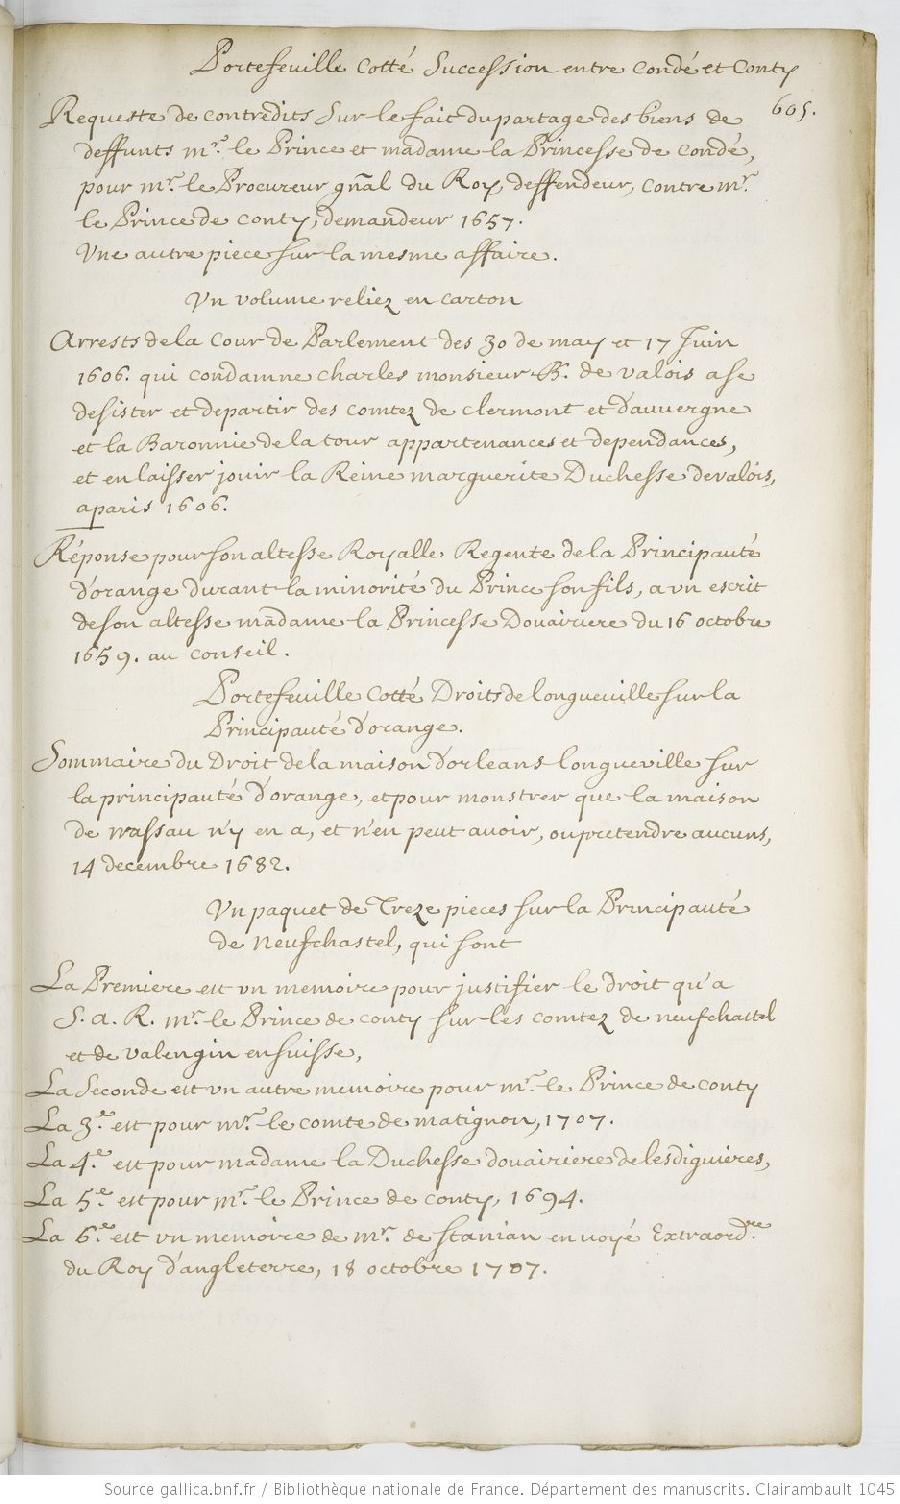 Portefeuille cotté Succession entre Condé et Conty
605.
Requeste de contredits Sur le fait du partage des biens de
deffunts mrs. le Prince et madame la Princesse de Condé,
pour mr. le Procureur gñal du Roy, deffendeur, contre mr.
le Prince de Conty, demandeur 1657.
Une autre piece sur la mesme affaire.
Un volume reliez en carton
Arrests de la Cour de Parlement des 30 de may et 17 Juin
1606. qui condamne Charles monsieur B. de valois a se
desister et departir des comtez de clermont et d'auvergne
et la Baronnie de la tour appartenances et dependances,
et en laisser jouir la Reine marguerite Duchesse de valois,
a paris 1606.
Réponse pour son altesse Royalle Regente de la Principauté
d'orange durant la minorité du Prince son fils, a un escrit
de son altesse madame la Princesse Douairiere du 16 octobre
1659. au conseil.
Portefeuille cotté Droits de longueville sur la
Principauté d'orange.
Sommaire du Droit de la maison d'orleans longueville sur
la principauté d'orange, et pour monstrer que la maison
de nassau n'y en a, et n'en peut avoir, ou pretendre aucuns,
14 decembre 1682.
Un paquet de Treze pieces sur la Principauté
de Neufchastel, qui sont
La Premiere est un memoire pour justifier le droit qu'a
S. a. R. mr. le Prince de Conty sur les comtez de neufchastel
et de Valengin en suisse,
La Seconde est un autre memoire pour mr. le Prince de conty
La 3e. est pour mr. le comte de matignon, 1707.
La 4e. est pour madame la Duchesse douairiere de lesdiguieres,
La 5e. est pour mr. le Prince de conty, 1694.
La 6e. est un memoire de mr. de stanian envoyé Extraordre.
du Roy d'angleterre, 18 octobre 1707.
Source gallica.bnf.fr / Bibliothèque nationale de France. Département des manuscrits. Clairambault 1045